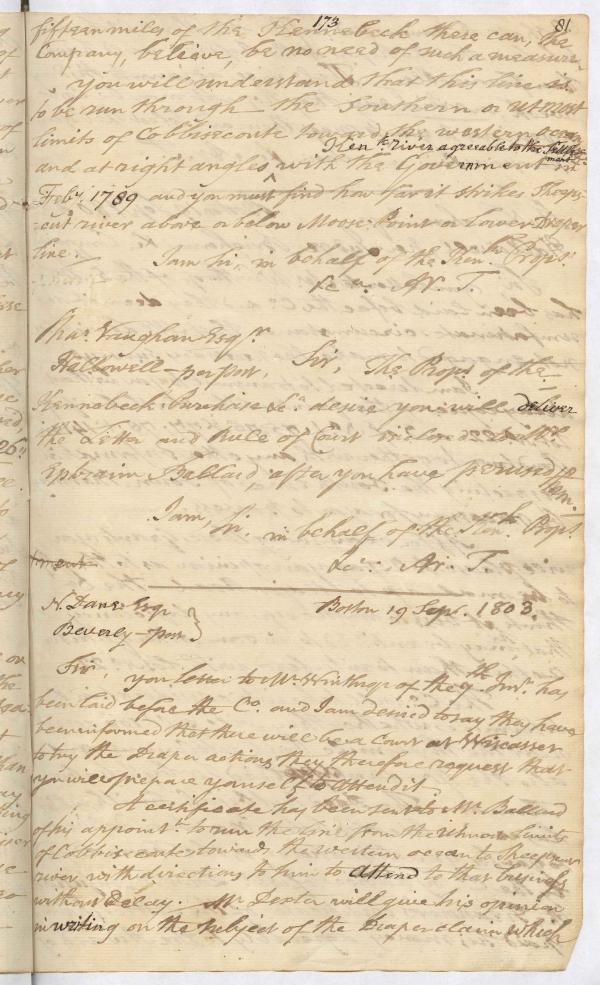 173
81
fifteen miles of the Kennebeck there can, the
Company, believe, be no need of such a measure.
you will understand that this line is
to be run through the Southern or utmost
limits of Cobbiseconte toward the western ocean
Ken. River agreeable to the Settle
ment
and at right angles with the Government in
Feby. 1789 and you must find how far it strikes Sheeps
-cut river above or below Moose Point or lower Draper
line.
I am Sir, in behalf of the Kenh. Props.
&ca. Ar. T.
Chas. Vaughan Esqr.
Hallowell - per post, Sir, The Props. of the
Kennebeck Purchase &ca. desire you will deliver
the Letter and Rule of Court inclosed to Mr.
Ephraim Ballard, after you have perused
them.
I am Sr. in behalf of the Kenh. Props
&ca. Ar. T.
ment
N. Dane Esqr
Beverly - post
Boston 19 Sept. 1803.
Sir, your letter to Mr. Winthrop of the 9th. Inst. has
been laid before the Co. and I am desired to say they have
been informed that there will be a Court at Wiscasset
to try the Draper actions they therefore request that
you will prepare yourself to attend it.
A certificate has been sent to Mr. Ballard
of his appointt. to run the line from the utmost limits
of Cobbiseconte towards the western ocean to Sheepscut
river with directions to him to attend to that business
without Delay. Mr Dexter will give his opinion
in writing on the subject of the Draper claim which